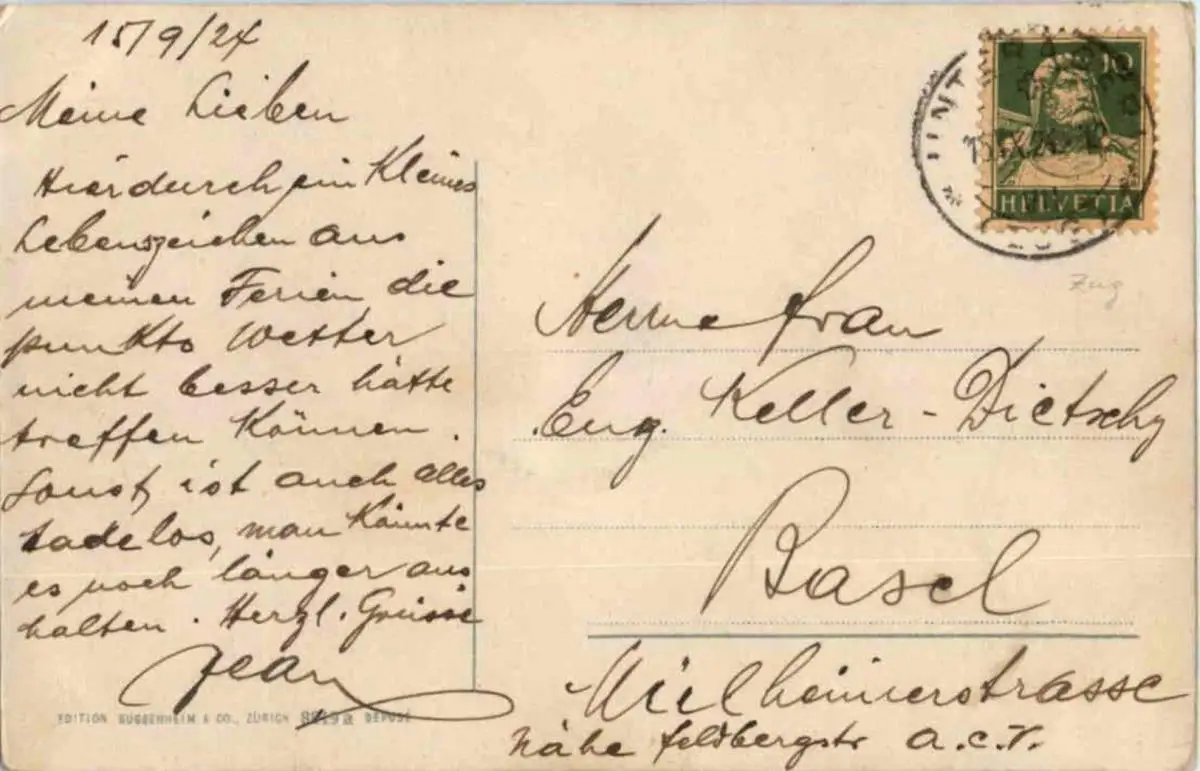 15/9/24
Meine Lieben
Hierdurch ein Kleines
Lebenszeichen aus
meinen Ferien die
punkto Wetter
nicht besser hätte
treffen Können.
Sonst, ist auch alles
tadelos, man Könnte
es noch länger aus
halten. Herzl. Grüsse
Jean
EDITION GUGGENHEIM & CO., ZÜRICH DEPOSÉ
10
HELVETIA
Zug
Herrn e frau
Eug. Keller-Dietschy
Basel
Mülheimerstrasse
Nähe feldbergstr